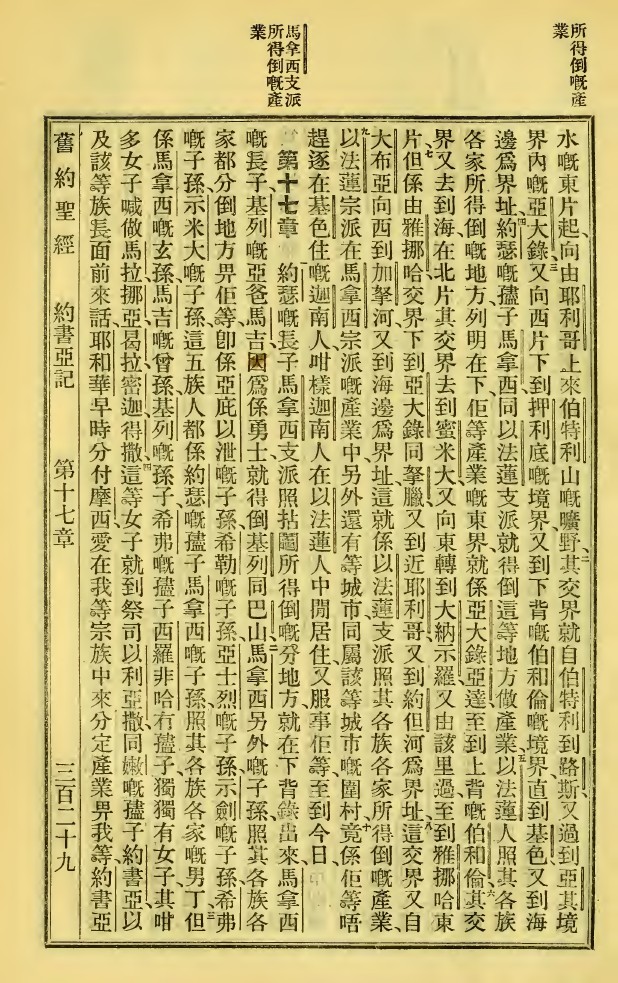 所得倒嘅產
業
馬拿西支派
所得倒嘅產
業
水嘅東片起、向由耶利哥上來伯特利山嘅曠野、二其交界就自伯特利到路斯、又過到亞其境
界內嘅亞大錄、三又向西片下到押利底嘅境界、又到下背嘅伯和倫嘅境界、直到基色、又到海
邊爲界址、四約瑟嘅孻子馬拿西、同以法蓮支派就得倒這等地方做產業、五以法蓮人照其各族
各家所得倒嘅地方列明在下、佢等產業嘅東界就係亞大錄亞達、至到上背嘅伯和倫、六其交
界又去到海、在北片其交界去到蜜米大、又向東轉到大納示羅、又由該里過、至到雅挪哈東
片、七但係由雅挪哈交界下到亞大錄、同拏臘、又到近耶利哥、又到約但河爲界址、八這交界又自
大布亞向西到加拏河、又到海邊爲界址、這就係以法蓮支派照其各族各家所得倒嘅產業、
九以法蓮宗派在馬拿西宗派嘅產業中、另外還有等城市、同屬該等城市嘅圍村、十竟係佢等唔
趕逐在基色住嘅迦南人、咁樣迦南人在以法蓮人中閒居住、又服事佢等至到今日、
第十七章 一約瑟嘅長子馬拿西支派照拈鬮所得倒嘅分地方、就在下背錄出來、馬拿西
嘅長子、基列嘅亞爸馬吉、因爲係勇士、就得倒基列同巴山、二馬拿西另外嘅子孫、照其各族各
家都分倒地方畀佢等、卽係亞庇以泄嘅子孫、希勒嘅子孫、亞士烈嘅子孫、示劍嘅子孫、希弗
嘅子孫、示米大嘅子孫、這五族人都係約瑟嘅孻子馬拿西嘅子孫、照其各族各家嘅男丁、三但
係馬拿西嘅玄孫、馬吉嘅曾孫、基列嘅孫子、希弗嘅孻子西羅非哈有孻子、獨獨有女子、其咁
多女子喊做馬拉、挪亞、曷拉、密迦、得撒、四這等女子就到祭司以利亞撒、同嫩嘅孻子約書亞、以
及該等族長面前來話、耶和華早時分付摩西、愛在我等宗族中來分定產業畀我等、約書亞
舊約聖經 約書亞記 第十七章 三百二十九